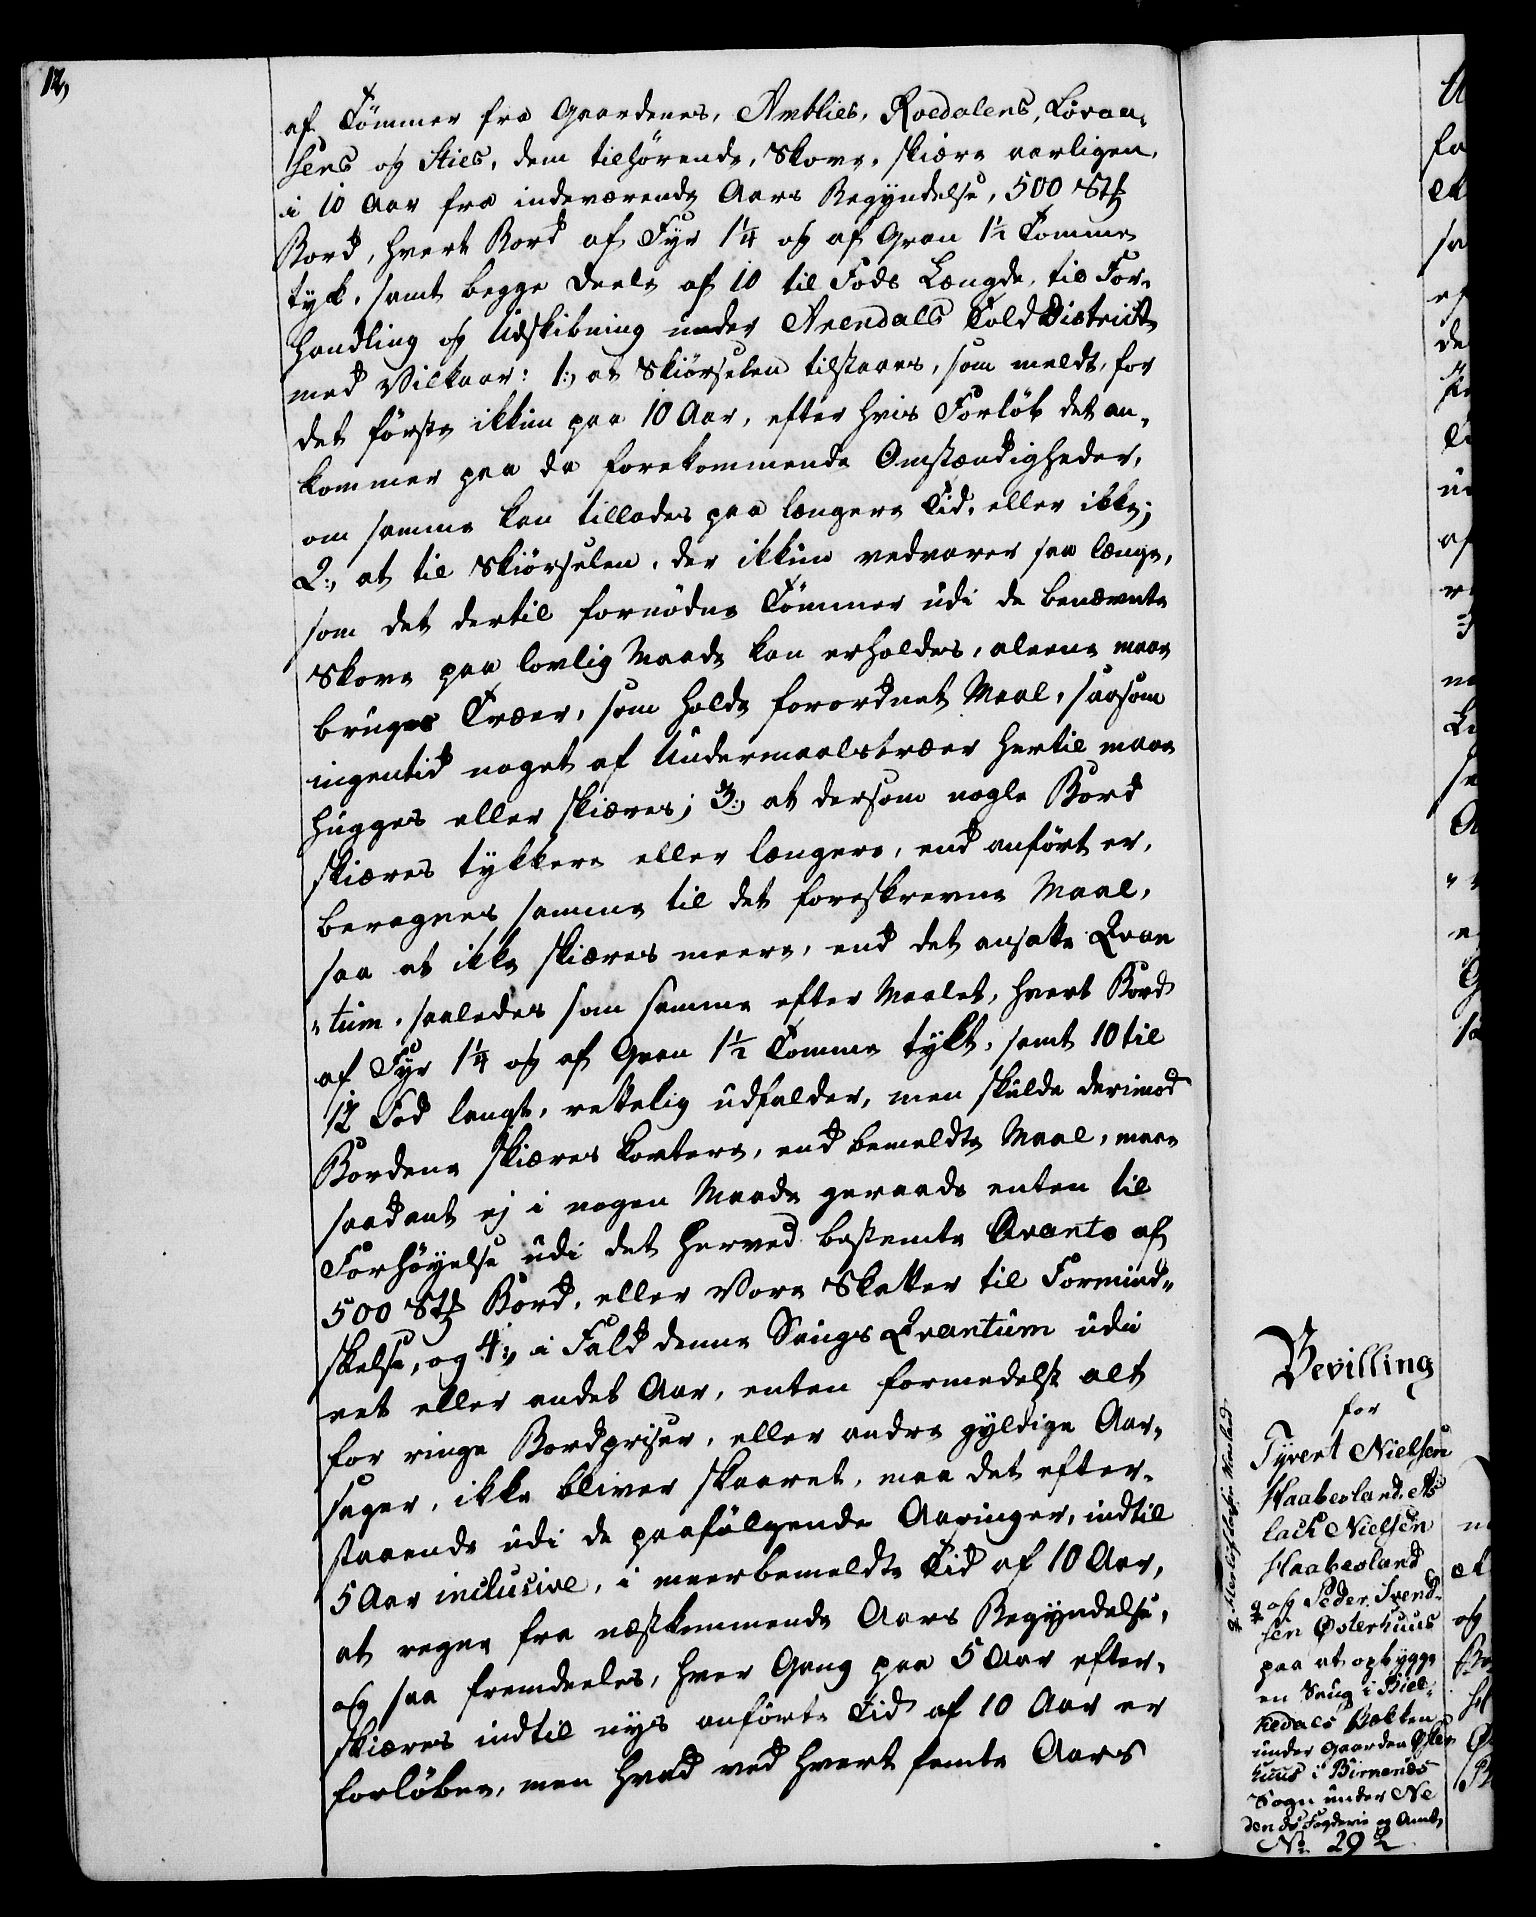 12,
af Tömmer fra Gaardenes, Amblies, Roedalens, Lövaa-
sens og Sties, dem tilhörende, Skove, skiære aarligen,
i 10 Aar fra indeværende Aars Begyndelse, 500 Stk
Bord, hvert Bord af Fyr 1¼ og af Gran 1½ Tomme
tyck, samt begge Deele af 10 til Fods Længde, til For-
handling og Udskibning under Arendalls Told District
med Vilkaar: 1:, at Skiörselen tilstaaes, som meldt, for
det förste ikkun paa 10 Aar, efter hvis Forlöb det an-
kommer paa de forekommende Omstændigheder,
om samme kan tillades paa længere Tid, eller ikke;
2:, at til Skiörselen, der ikkun vedvarer saa længe,
som det dertil fornödne Tömmer udi de benævnte
Skove paa lovlig Maade kan erholdes, aleene maae
bruges Træer, som holde forordnet Maal, saasom
ingentid noget af Undermaalstræer hertil maae
hugges eller skiæres; 3:, at dersom nogle Bord
skiæres tykkere eller længere, end anfört er,
beregnes samme til det foreskrevne Maal,
saa at ikke skiæres meere, end det ansatte Qvan
-tum, saaledes som samme efter Maalet, hvert Bord
af Fyr 1¼ og af Gran 1½ Tomme tykt, samt 10 til
12 Fod langt, rettelig udfalder, men skulde derimod
Bordene skiæres kortere, end bemeldte Maal, maae
saadant ej i nogen Maade geraade enten til
Forhöyelse udi det herved bestemte Qvanto af
500 Stk Bord, eller Vore Skatter til Formind-
skelse, og 4:, i Fald denne Saugs Qvantum udi
eet eller andet Aar, enten formedelst alt
for ringe Bordpriser, eller andre gyldige Aar-
sager, ikke bliver skaaret, maa det efter-
staaende udi de paafölgende Aaringer, indtil
5 Aar inclusive, i meerbemeldte Tid af 10 Aar,
at regne fra næstkommende Aars Begyndelse,
og saa fremdeeles, hver Gang paa 5 Aar efter-
skiæres indtil nys anförte Tid af 10 Aar er
forlöben, men hvad ved hvert femte Aars
Bevilling
for
Tyvert Nielsen
Haabesland, As
lack Nielsen
Haabesland
og Peder Svend-
sen Østerhuus
paa at opbygge
en Saug i Biel-
kedals Bækken
under Gaarden Öster
huus i Birnenes
Sogn under Ne
denes Fogderie og Amt,
No 29½